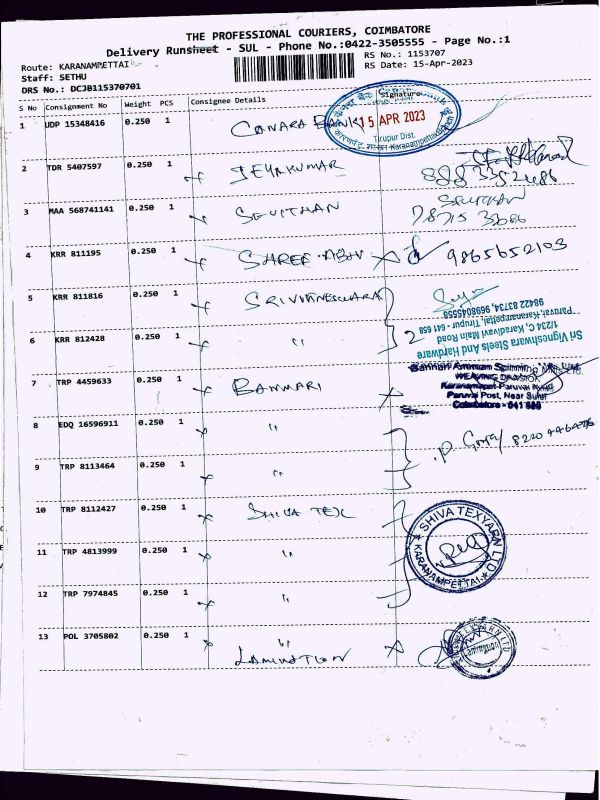 THE PROFESSIONAL COURIERS, COIMBATORE
Delivery Runsheet - SUL - Phone No.:0422-3505555 - Page No.:1
Route: KARANAMPETTAI
Staff: SETHU
DRS No.: DCJB115370701
RS No.: 1153707
RS Date: 15-Apr-2023
S No Consignment No Weight PCS Consignee Details Signature
1 UDP 15348416 0.250 1 CANARA BANK
15 APR 2023
Tirupur Dist.
2 TDR 5407597 0.250 1 JEYAKUMAR
3 MAA 568741141 0.250 1 SEVITHAN
4 KRR 811195 0.250 1 SHREE 9865652103
5 KRR 811816 0.250 1
6 KRR 812428 0.250 1 " 2
Sri Vigneshwara Steels And Hardware
1/234 C, Karadivavi Main Road
Paruvai, Karanampettai, Tirupur - 641 658
98422 83734, 9698045558
7 TRP 4459633 0.250 1 BANNARI
Bannari Amman Spinning Mills Ltd.
WEAVING DIVISION
Karanampet-Paruvai Road
Paruvai Post, Near Sulur
Coimbatore - 641
8 EDQ 16596911 0.250 1 "
9 TRP 8113464 0.250 1 "
10 TRP 8112427 0.250 1 SHIVA TEX
SHIVA TEXYARN LTD
KARANAMPETTAI
11 TRP 4813999 0.250 1 "
12 TRP 7974845 0.250 1 "
13 POL 3705802 0.250 1 "
LAMINATION